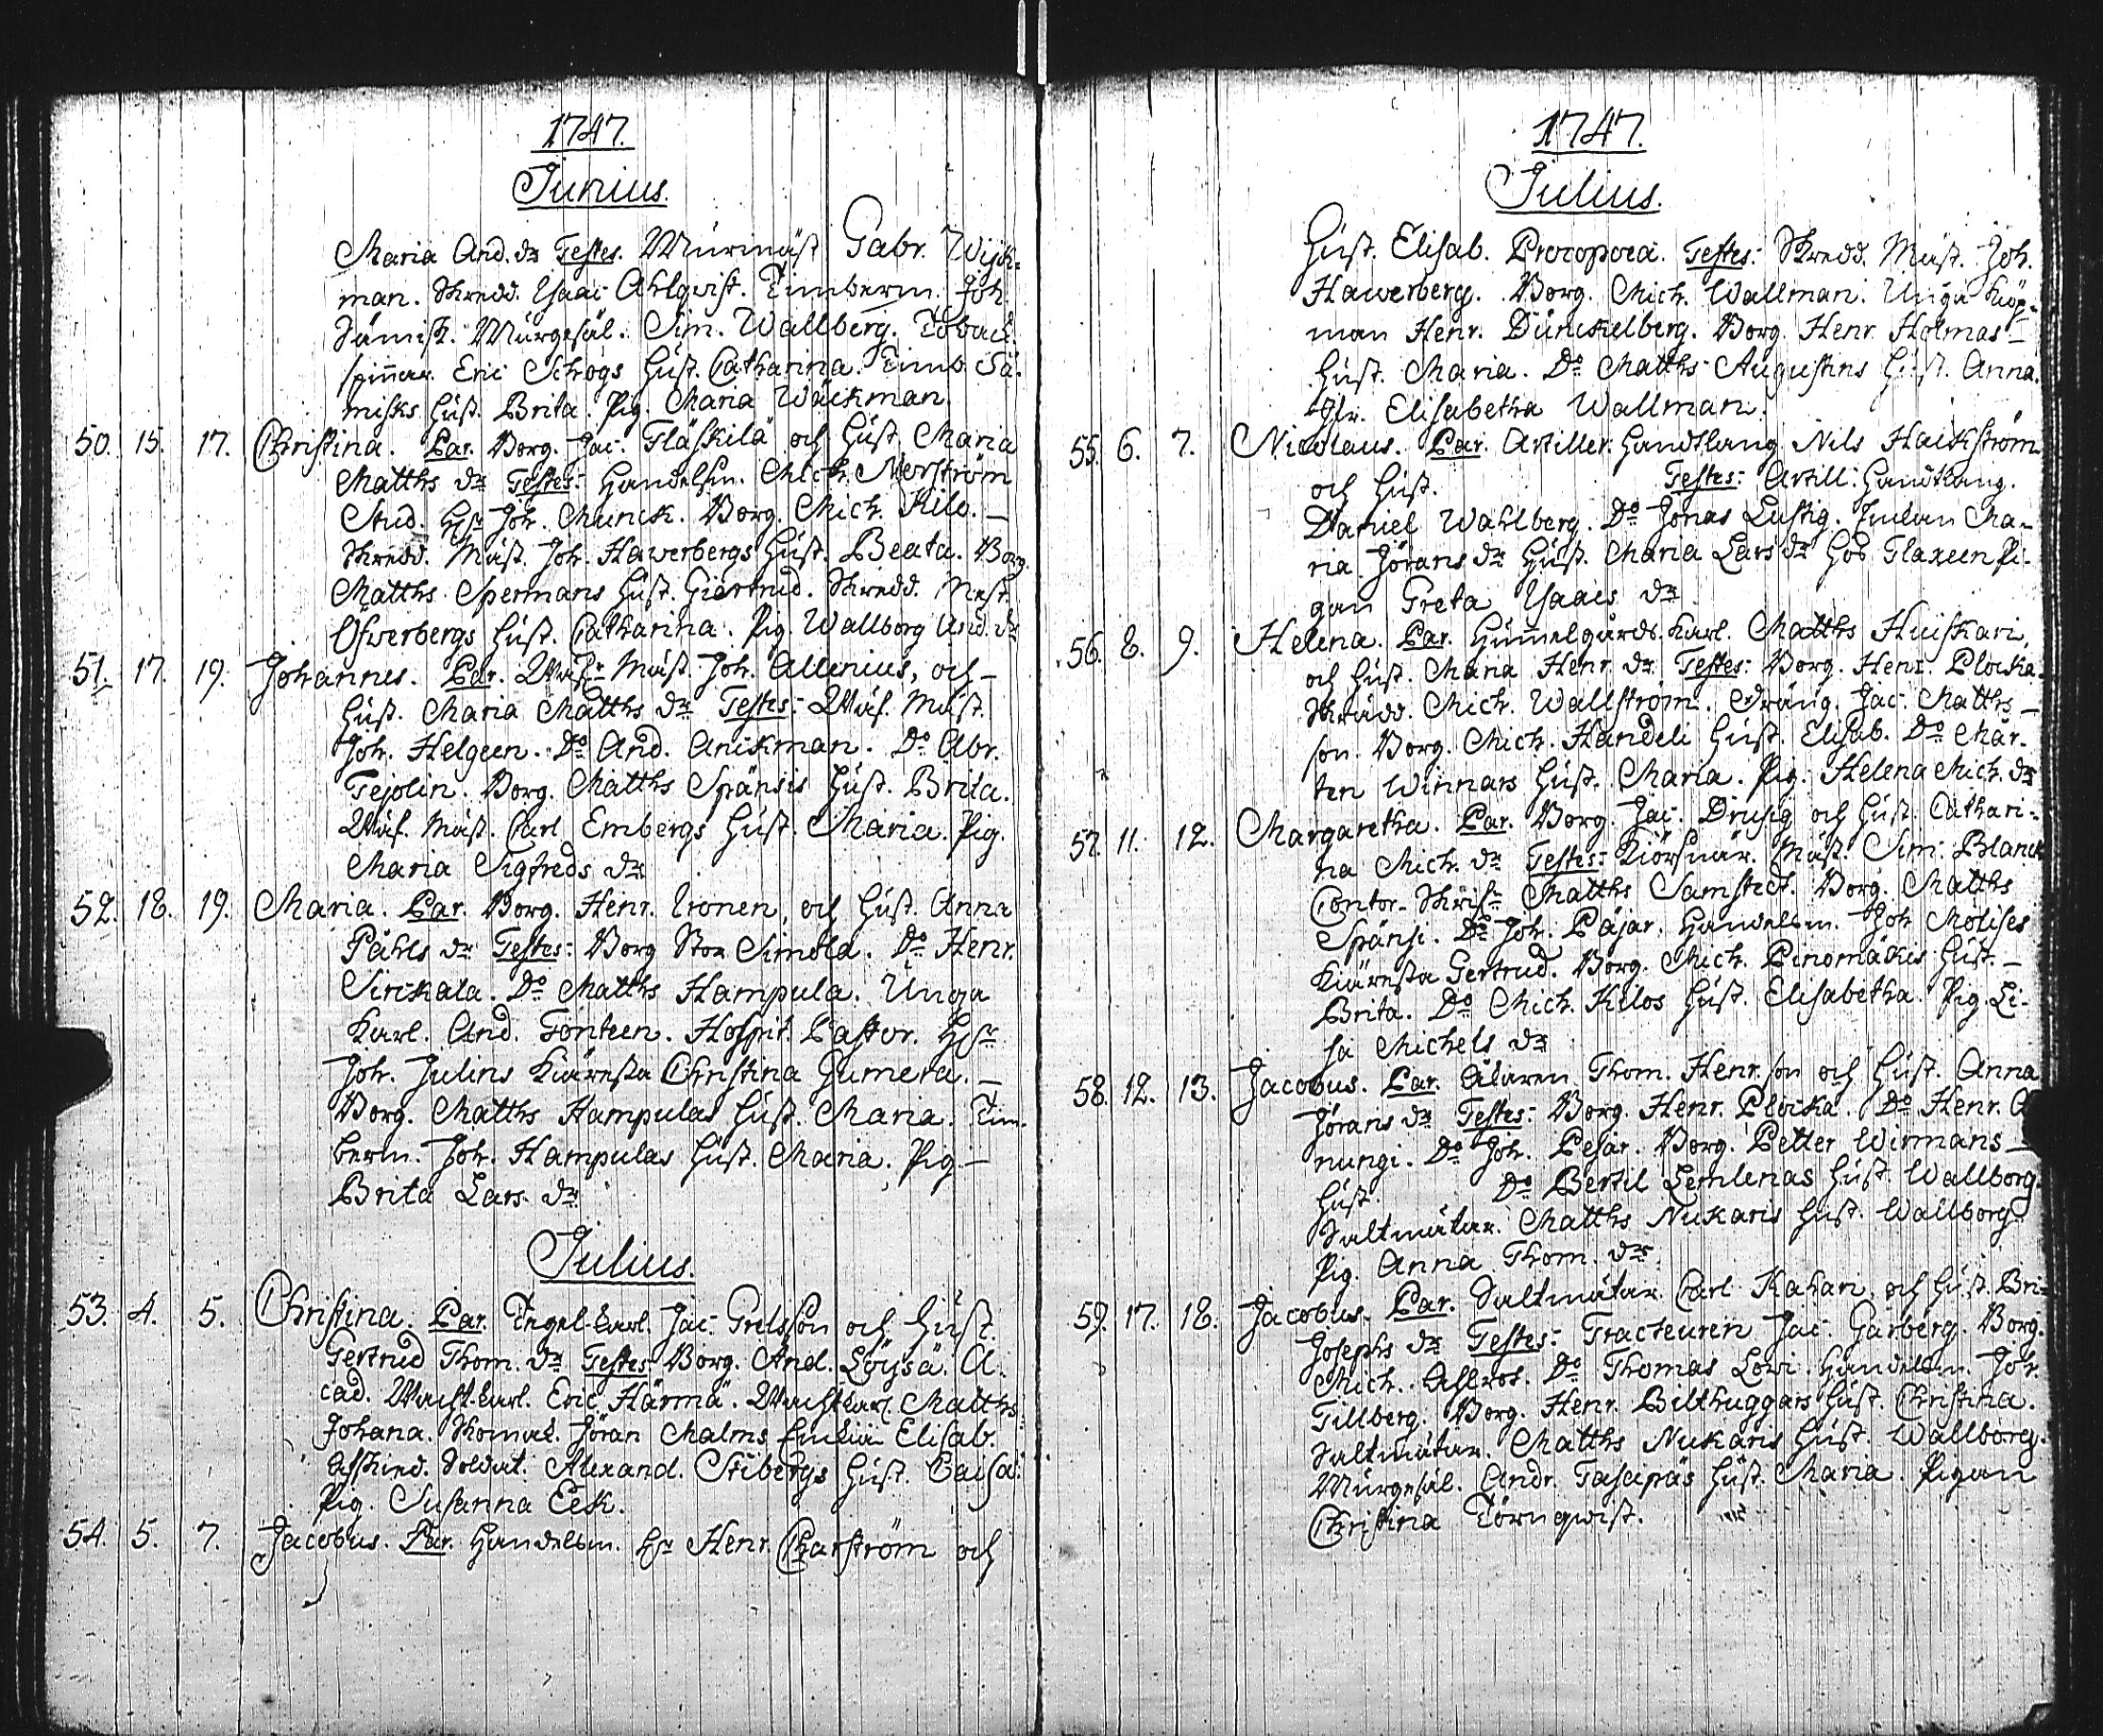 1747.
Junius.
Maria And. dr Testes. Murmäst. Gabr. Wijk=
man. Skredd. Isaac Ahlqvist. Timberm. Joh.
Sämisk. Murgesäl. Sim. Wallberg. Toback.
spinnar. Eric Schogs Hust. Catharina. Timb. Sä=
misks Hust. Brita. Pig. Maria Wäckman.
50. 15. 17. Christina. Par. Borg. Jac. Fläskilä och Hust. Maria
Matths dr Testes: Handelsm. Mich. Norström
Stud. Hr Joh. Munck. Borg. Mich. Kilo.
Skredd. Mäst. Joh. Hawerbergs Hust. Beata. Borg.
Matths Spermans Hust. Giertrud. Skredd. Mest.
Öfwerbergs Hust. Catharina. Pig. Wallborg And. dr
51. 17. 19. Johannes. Par. Wäf. Mäst. Joh. Allenius, och
Hust. Maria Matths dr Testes: Wäf. Mäst.
Joh. Helgeen. Do And. Anikman. Do Abr.
Tejolin. Borg. Matths Spänsis Hust. Brita.
Wäf. Mäst. Carl Embergs Hust. Maria. Pig.
Maria Sigfreds dr
52. 18. 19. Maria. Par. Borg. Henr. Ironen, och Hust. Anna
Påhls dr Testes: Borg. Stor Simola. Do Henr.
Sirckala. Do Matths Hampula. Unga
Karl. And. Fonteen. Hospit. Pastor. Hr
Joh. Julins Kiäresta Christina Gumera.
Borg. Matths Hampulas Hust. Maria. Tim-
berm. Joh. Hampulas Hust. Maria. Pig
Brita Lars dr
Julius.
53. 4. 5. Christina. Par. Tegel-karl. Jac. Grelsson och Hust.
Gertrud Thom. dr Testes: Borg. And. Löysä. A.
cad. Wacht-karl. Eric Härmä. Wachtkarl Matths
Johana. Skomak. Jöran Malms Enkia Elisab.
Afskied. Soldat. Alexand. Stibergs Hust. Caisa.
Pig. Susanna Eek.
54. 5. 7. Jacobus. Par. Handelsm. Hr Henr. Charström och
1747.
Julius.
Hust. Elisab. Procopoea. Testes: Skredd. Mäst. Joh.
Hawerberg. Borg. Mich. Wallman. Unga Kiöp-
man Henr. Dunckelberg. Borg. Henr. Holmas
Hust. Maria. Do Matths Augustins Hust. Anna.
Jfr. Elisabetha Wallman.
55. 6. 7. Nicolaus. Par. Artiller. Handtlang. Nils Hackström
och Hust. Testes: Artill. Handtlang.
Daniel Wahlberg. Do Jonas Lustig. Enkan Ma-
ria Jörans dr Hust. Maria Lars dr Hos Flaxeen Pi-
gan Greta Isaacs dr
56. 8. 9. Helena. Par. Humelgårds Karl. Matths Huiskari,
och Hust. Maria Henr. dr Testes: Borg. Henr. Plocka.
Skrädd. Mich. Wallström. Dräng. Jac. Matths
son. Borg. Mich. Handeli Hust. Elisab. Do Mår-
ten Winnars Hust. Maria. Pig. Helena Mich. dr
57. 11. 12. Margaretha. Par. Borg. Jac. Drusig och Hust. Cathari-
na Mich. dr Testes: Kiörsnär. Mäst. Sim. Blanck
Contor-Skrif. Matths Samstedt. Borg. Matths
Spänsi. Do Joh. Päjar. Handelsm. Joh. Molises
Kiäresta Gertrud. Borg. Mich. Pinomäkis Hust.
Brita. Do Mich. Kilos Hust. Elisabetha. Pig. Li-
sa Michels dr
58. 12. 13. Jacobus. Par. Åldaren Thom. Henr.son och Hust. Anna
Jörans dr Testes: Borg. Henr. Plocka. Do Henr.
nungi. Do Joh. Pesar. Borg. Petter Wirmans
Hust. Do Bertil Lemlenas Hust. Wallborg.
Saltmätar. Matths Nukaris Hust. Wallborg
Pig. Anna Thom. dr
59. 17. 18. Jacobus. Par. Saltmätar. Carl Kahan och Hust. Bri-
Josephs dr Testes: Tracteuren Jac. Garberg. Borg.
Mich. Do Thomas Lovi. Handelsm. Joh.
Tillberg. Borg. Henr. Bilthuggars Hust. Christina.
Saltmätar. Matths Nukaris Hust. Wallborg.
Murgesäl. Andr. Tascipäs Hust. Maria. Pigan
Christina Törnqwist.